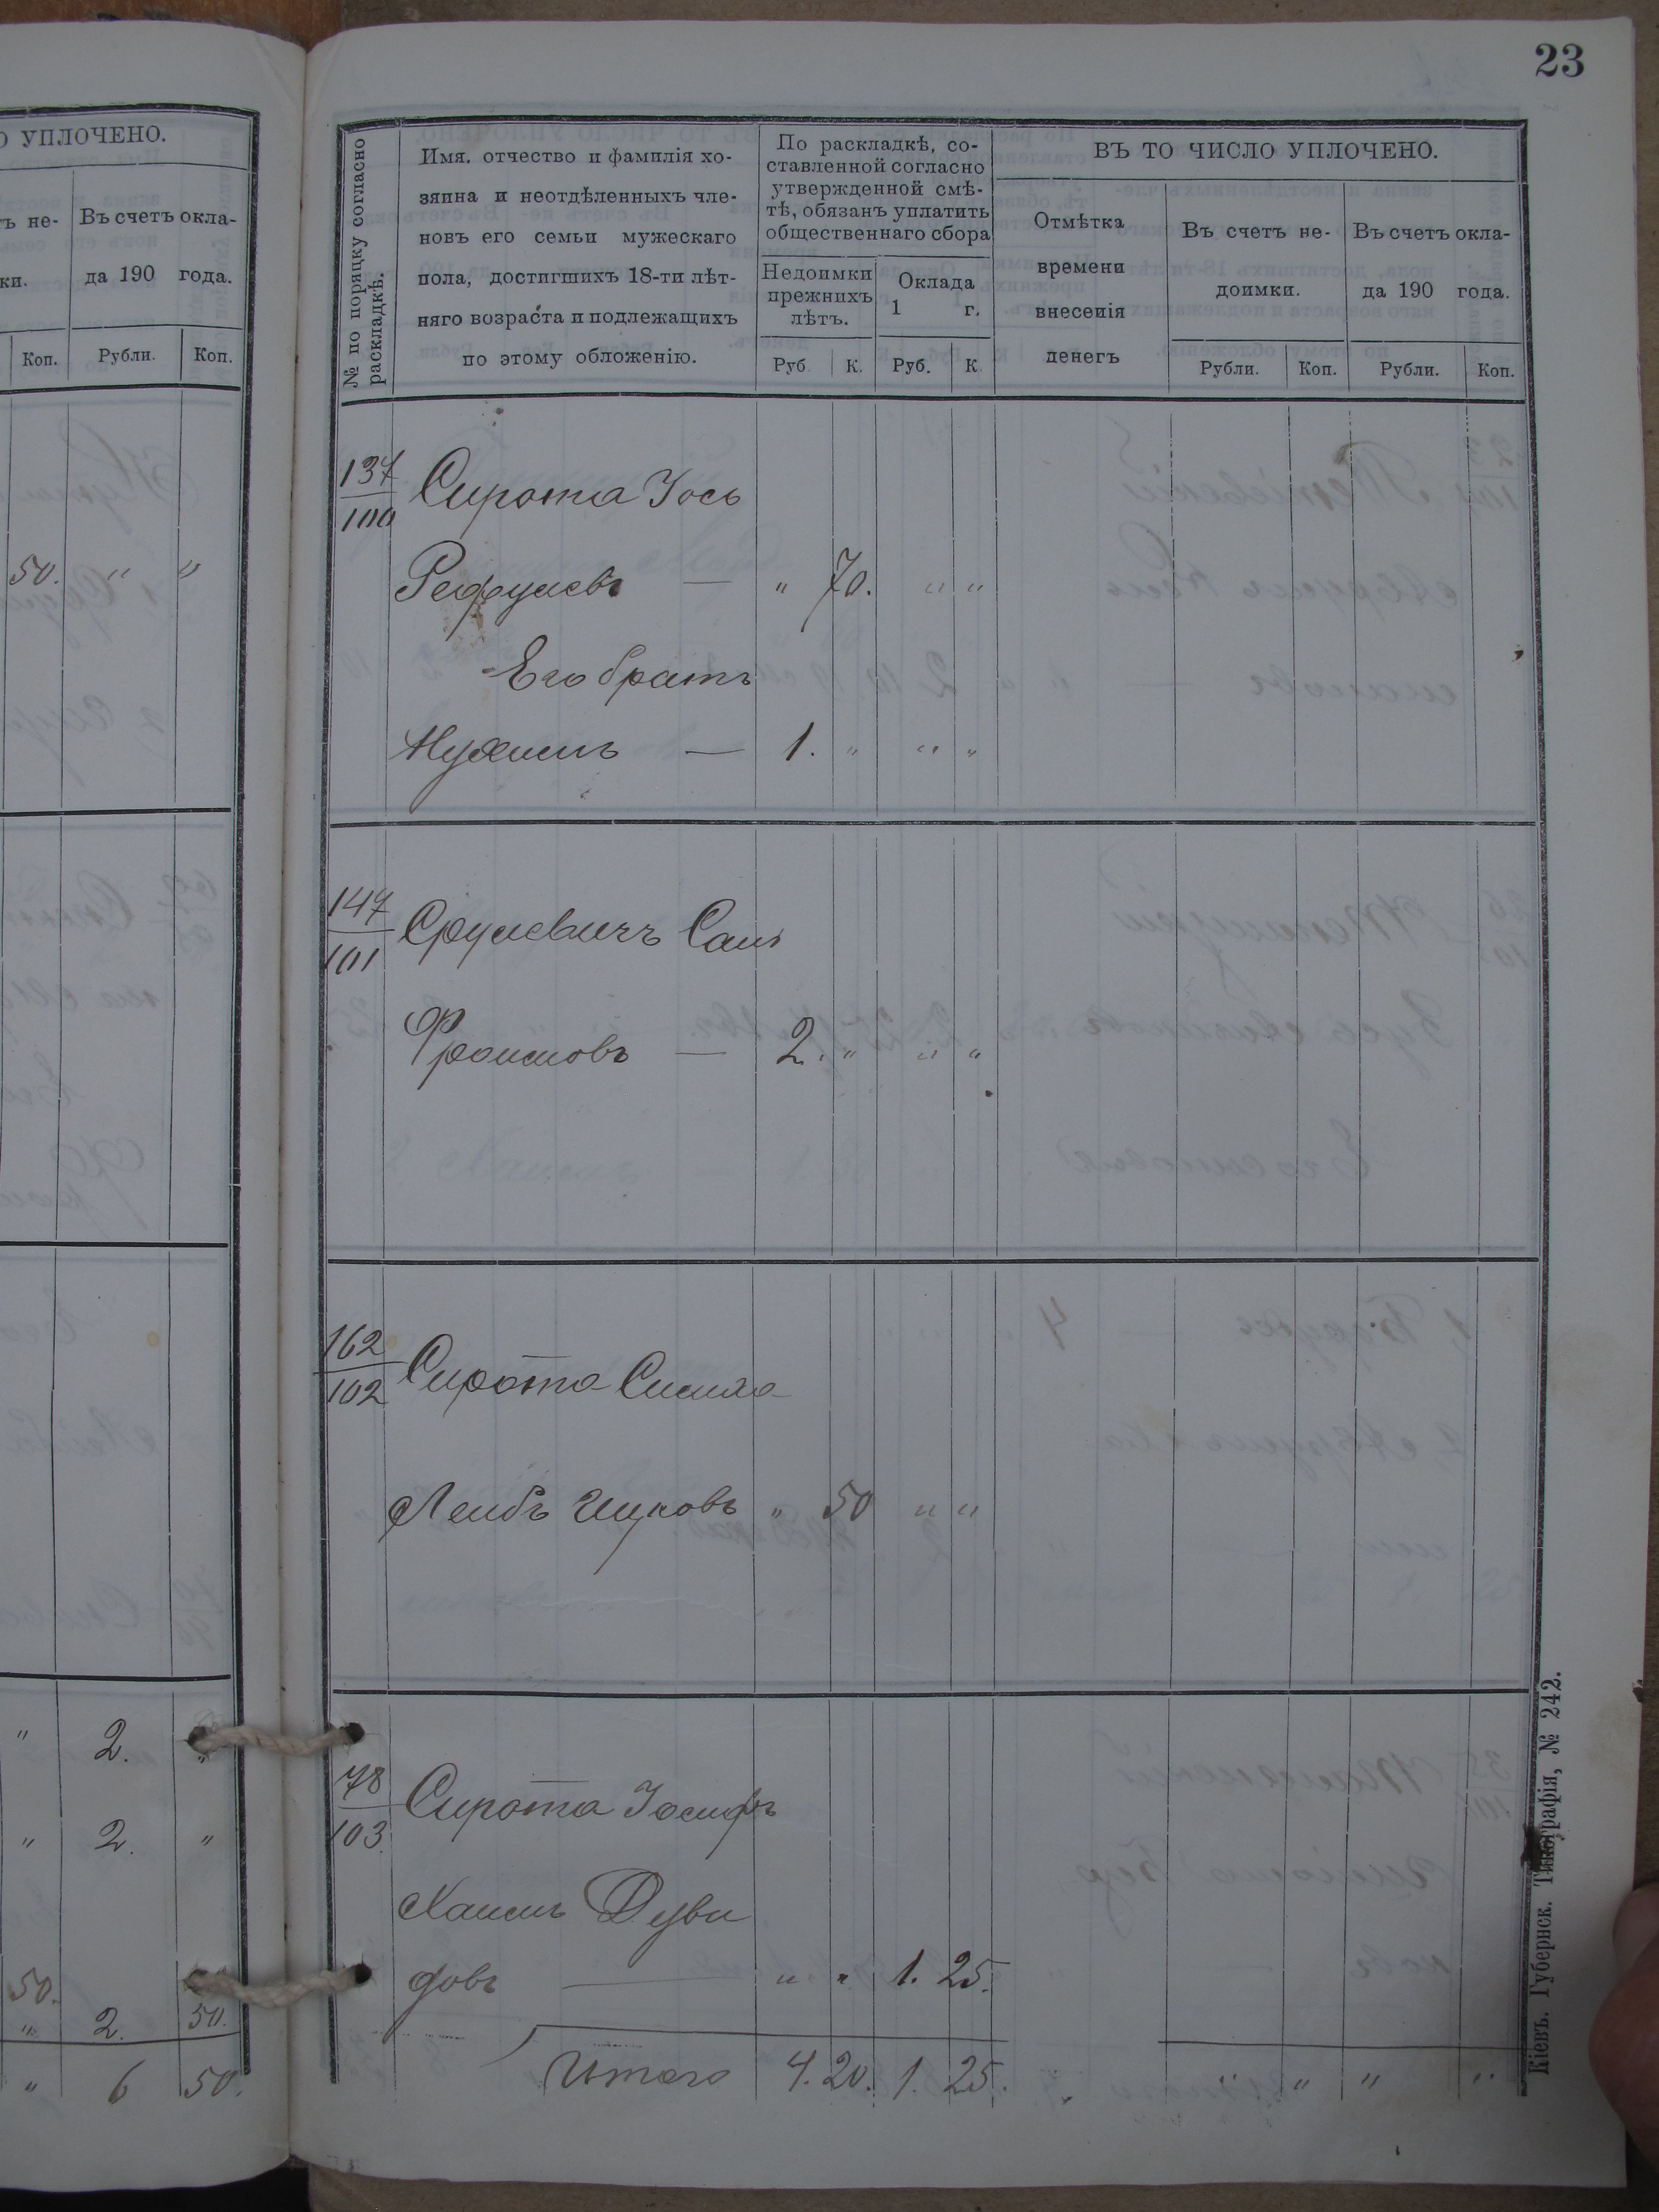 23
О УПЛОЧЕНО.
ъ не-
ки.
Въ счетъ окла-
да 190 года.
Коп.
Рубли.
Коп.
50. " "
" 2. "
" 2. "
50.
" 2. 50.
" 6 50.
№ по порядку согласно
раскладкѣ.
Имя. отчество и фамилія хо-
зяина и неотдѣленныхъ чле-
новъ его семьи мужескаго
пола, достигшихъ 18-ти лѣт-
няго возраста и подлежащихъ
по этому обложенію.
По раскладкѣ, со-
ставленной согласно
утвержденной смѣ-
тѣ, обязанъ уплатить
общественнаго сбора
Недоимки
прежнихъ
лѣтъ.
Оклада
1 г.
Руб. К. Руб. К.
ВЪ ТО ЧИСЛО УПЛОЧЕНО.
Отмѣтка
времени
внесенія
денегъ
Въ счетъ не-
доимки.
Въ счетъ окла-
да 190 года.
Рубли. Коп. Рубли. Коп.
137
100
Сирота Іось
— " 70. " "
Его братъ
Нухимъ — 1. " " "
147
101
Срулевичъ
Фроимовъ — 2. " " "
162
102
Сирота Симха
Лейбъ Ицковъ " 50 " "
78
103.
Сирота Іосифъ
Хаимъ Дуви
довъ — " " 1. 25.
Итого 4. 20. 1. 25. " " " "
Кіевъ. Губернск. Типографія, № 242.